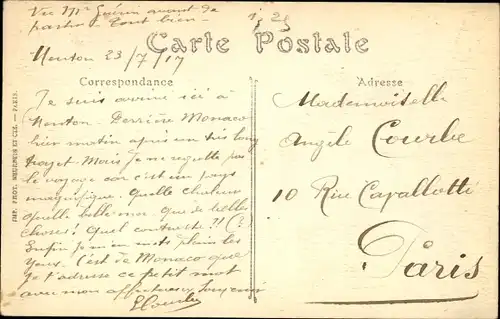 Vu Mr Guérin avant de
partir. Tout bien
Carte Postale
Menton 23/7/17
Correspondance
Adresse
Je suis arrivé ici à
Menton. Derrière Monaco
hier matin après un très long
trajet. Mais je ne regrette pas
le voyage car c'est un pays
magnifique. Quelle chaleur
quelle belle mer. Que de belles
choses! Quel contraste!! (?)
Enfin j'en mets plein les
yeux. C'est de Monaco que
je t'adresse ce petit mot
avec mon affectueux souvenir
Mademoiselle
Angèle Courbe
10 Rue Cavallotti
Paris